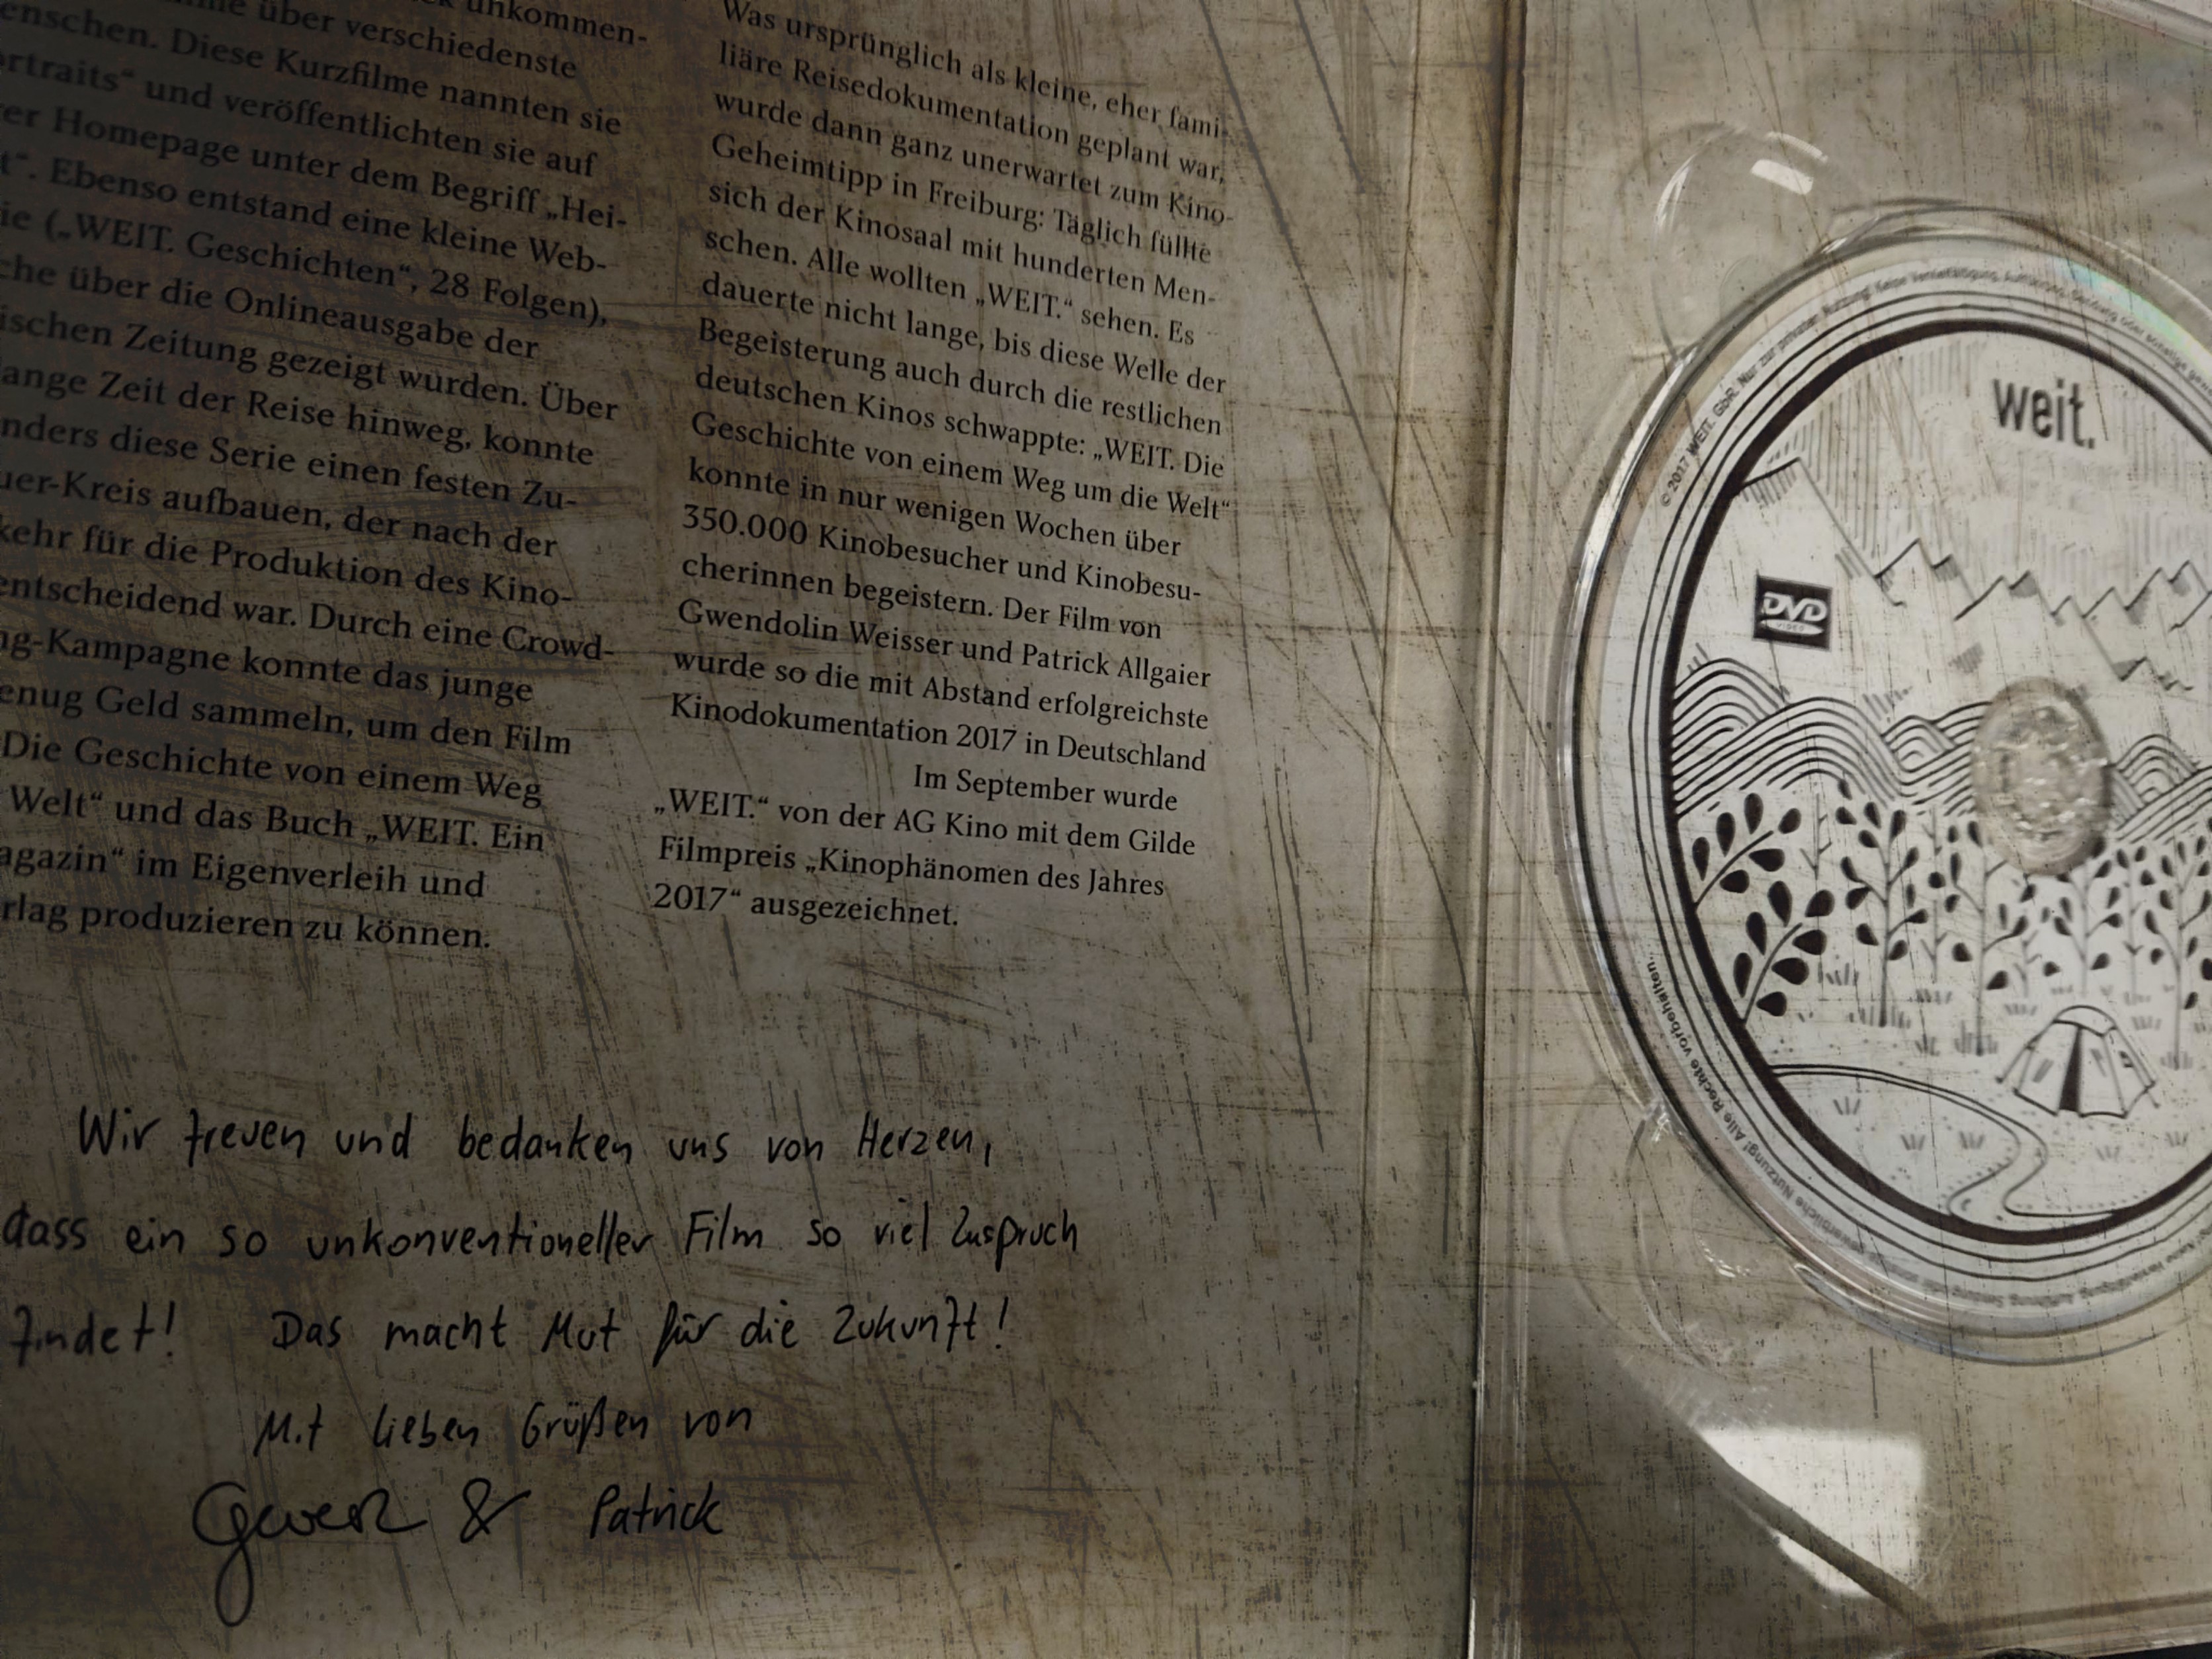 unkommen-
über verschiedenste
enschen. Diese Kurzfilme nannten sie
ortraits“ und veröffentlichten sie auf
rer Homepage unter dem Begriff „Hei-
t“. Ebenso entstand eine kleine Web-
ie („WEIT. Geschichten“, 28 Folgen),
che über die Onlineausgabe der
ischen Zeitung gezeigt wurden. Über
ange Zeit der Reise hinweg, konnte
nders diese Serie einen festen Zu-
uer-Kreis aufbauen, der nach der
kehr für die Produktion des Kino-
entscheidend war. Durch eine Crowd-
ng-Kampagne konnte das junge
enug Geld sammeln, um den Film
Die Geschichte von einem Weg
Welt“ und das Buch „WEIT. Ein
agazin“ im Eigenverleih und
rlag produzieren zu können.
Was ursprünglich als kleine, eher fami-
liäre Reisedokumentation geplant war,
wurde dann ganz unerwartet zum Kino-
Geheimtipp in Freiburg: Täglich füllte
sich der Kinosaal mit hunderten Men-
schen. Alle wollten „WEIT.“ sehen. Es
dauerte nicht lange, bis diese Welle der
Begeisterung auch durch die restlichen
deutschen Kinos schwappte: „WEIT. Die
Geschichte von einem Weg um die Welt“
konnte in nur wenigen Wochen über
350.000 Kinobesucher und Kinobesu-
cherinnen begeistern. Der Film von
Gwendolin Weisser und Patrick Allgaier
wurde so die mit Abstand erfolgreichste
Kinodokumentation 2017 in Deutschland
Im September wurde
„WEIT.“ von der AG Kino mit dem Gilde
Filmpreis „Kinophänomen des Jahres
2017“ ausgezeichnet.
Wir freuen und bedanken uns von Herzen,
dass ein so unkonventioneller Film so viel Zuspruch
findet! Das macht Mut für die Zukunft!
Mit lieben Grüßen von
Gwen & Patrick
weit.
DVD
VIDEO
© 2017 WEIT. GbR. Nur zur privaten Nutzung.
Nutzung! Alle Rechte vorbehalten.